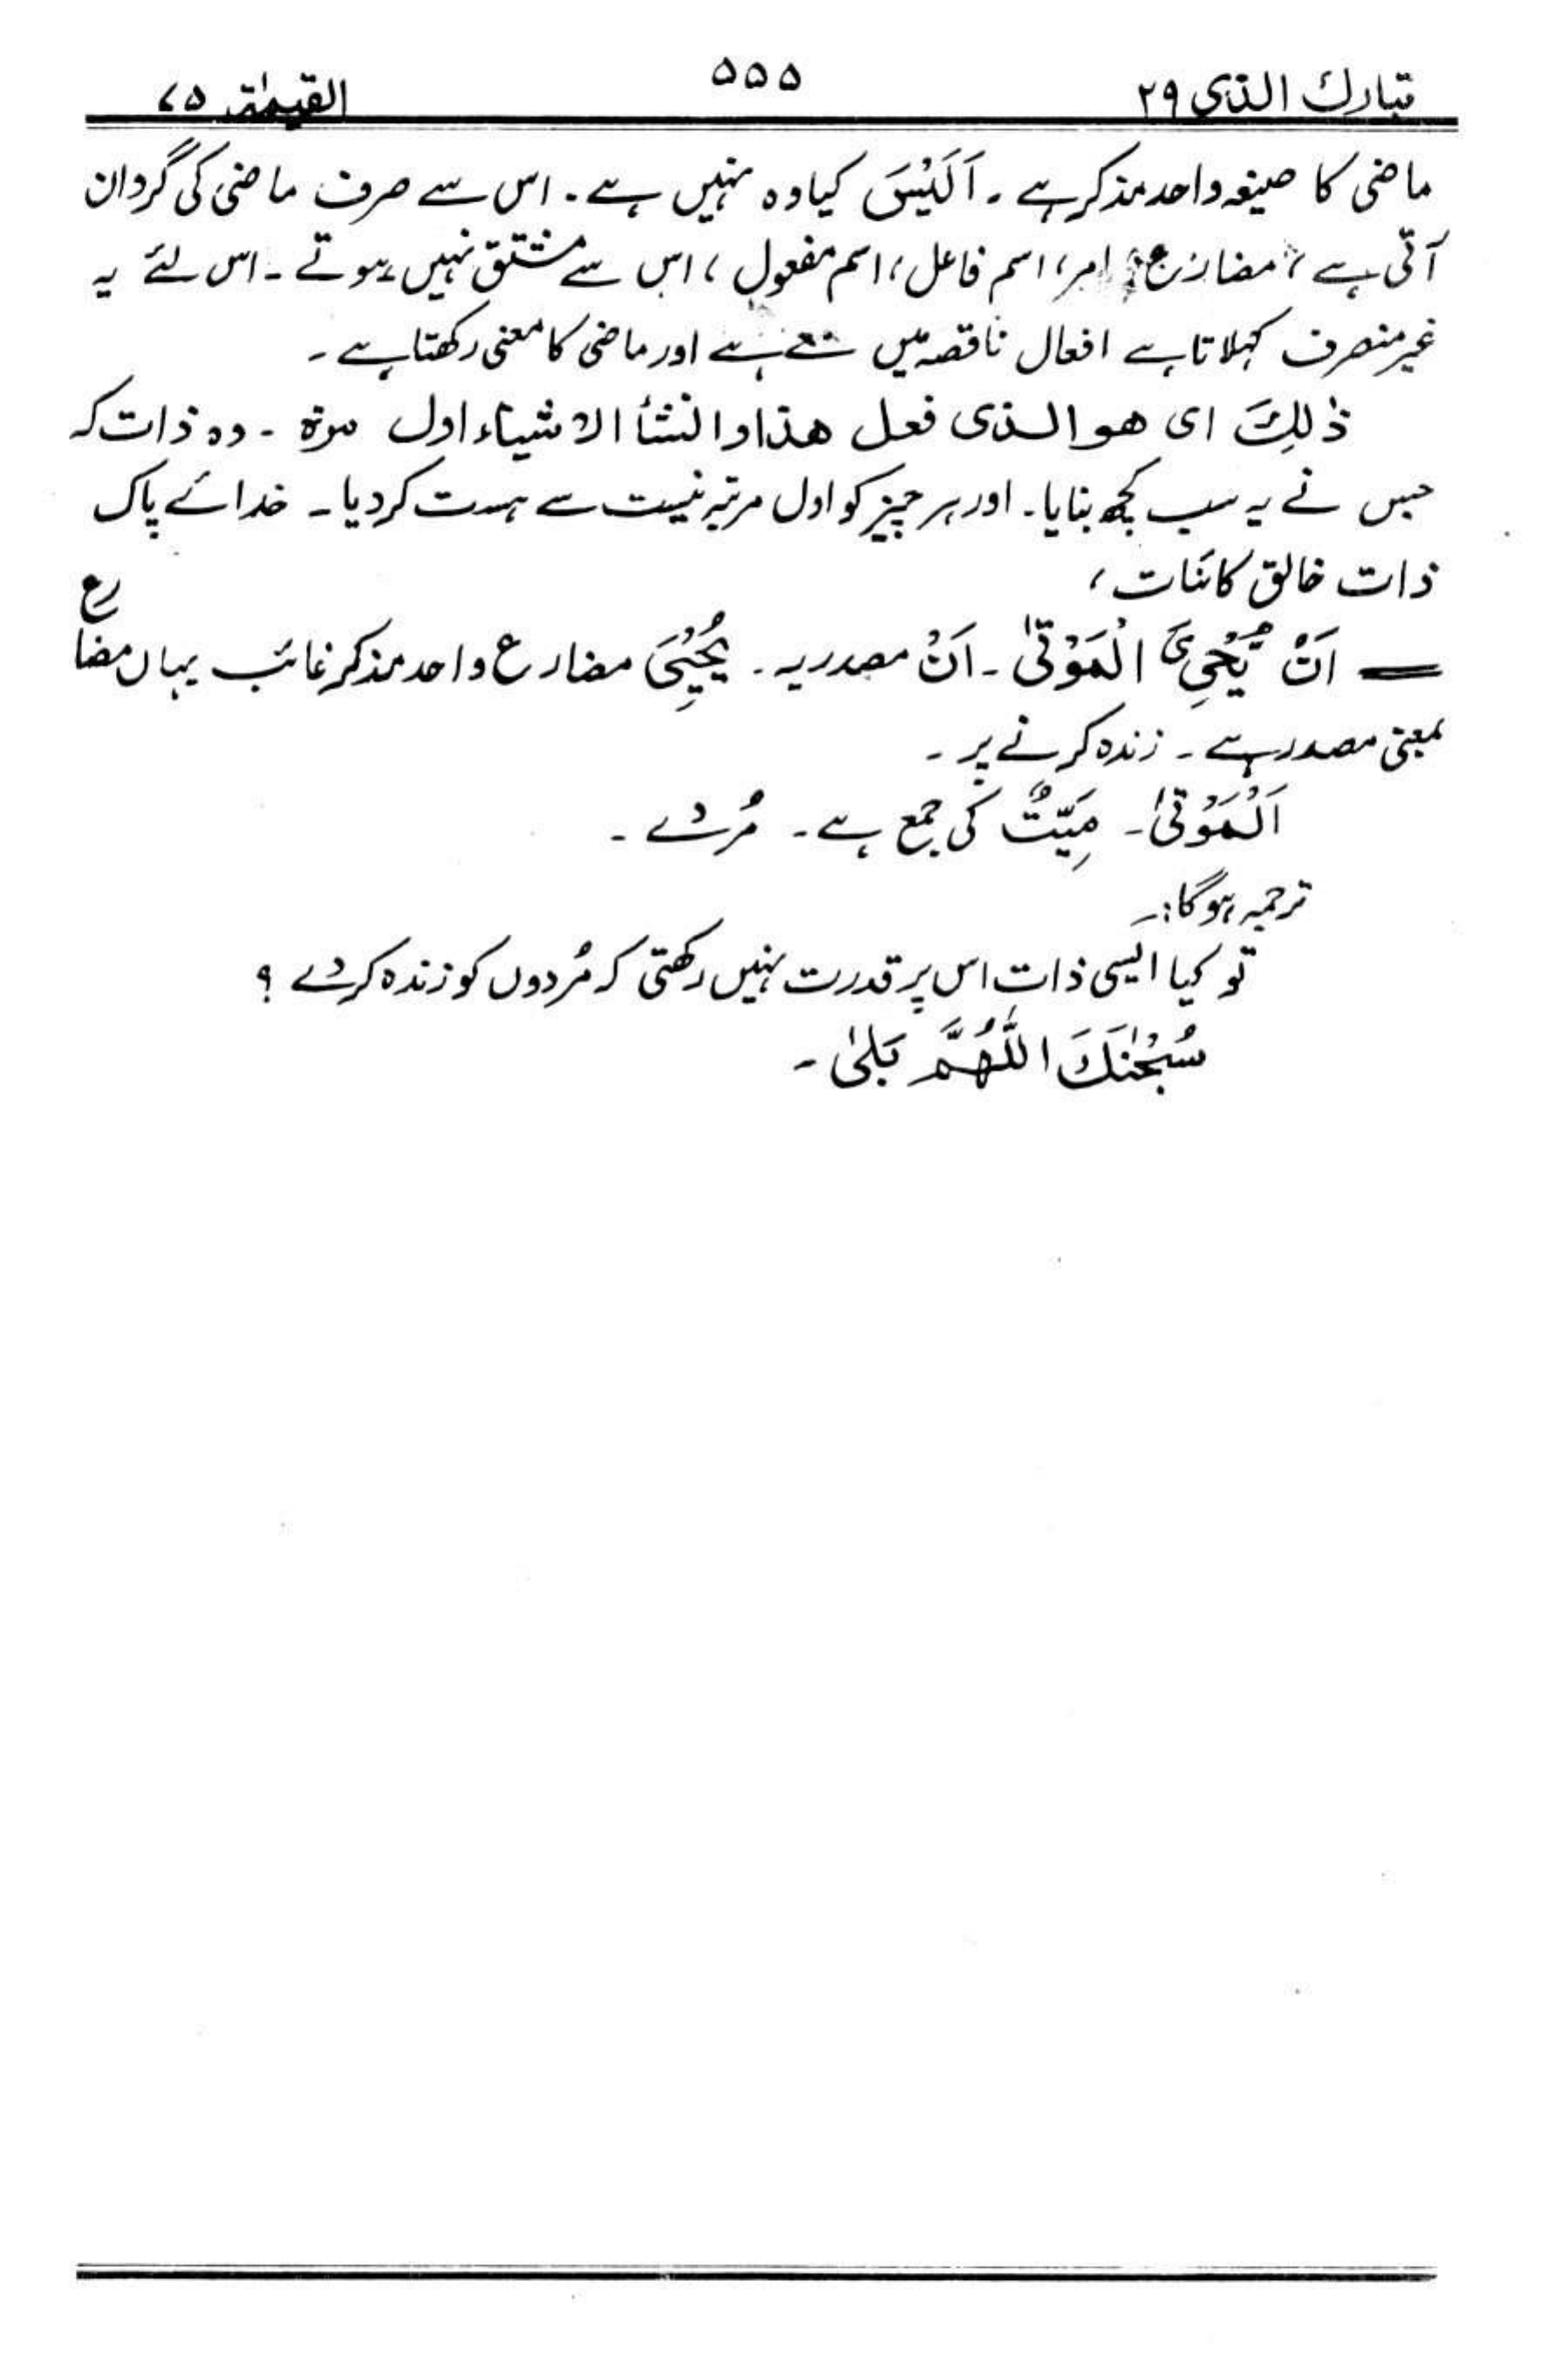 تبارك الذی ۲۹
۵۵۵
القیمٰۃ ۷۵
ماضی کا صیغہ واحد مذکر ہے ۔ اَلَیْسَ کیا وہ نہیں ہے ۔ اس سے صرف ماضی کی گردان
آتی ہے ، مضارع ، امر ، اسم فاعل ، اسم مفعول ، اس سے مشتق نہیں ہوتے ۔ اس لئے یہ
غیر منصرف کہلاتا ہے افعال ناقصہ میں سے ہے اور ماضی کا معنی رکھتا ہے ۔
ذٰلِكَ ای ھو الذی فعل ھذا و انشأ الاشیاء اول مرۃ ۔ وہ ذات کہ
جس نے یہ سب کچھ بنایا ۔ اور ہر چیز کو اول مرتبہ نیست سے ہست کر دیا ۔ خدائے پاک
ذات خالق کائنات ،
= اَنْ یُّحْیِیَ الْمَوْتٰی ۔ اَنْ مصدریہ ۔ یُحْیِیَ مضارع واحد مذکر غائب یہاں مضارع
بمعنی مصدر ہے ۔ زندہ کرنے پر ۔
اَلْمَوْتٰی ۔ مِیِّتٌ کی جمع ہے ۔ مُردے ۔
ترجمہ ہوگا :۔
تو کیا ایسی ذات اس پر قدرت نہیں رکھتی کہ مُردوں کو زندہ کردے ؟
سُبْحٰنَكَ اللّٰھُمَّ بَلٰی ۔